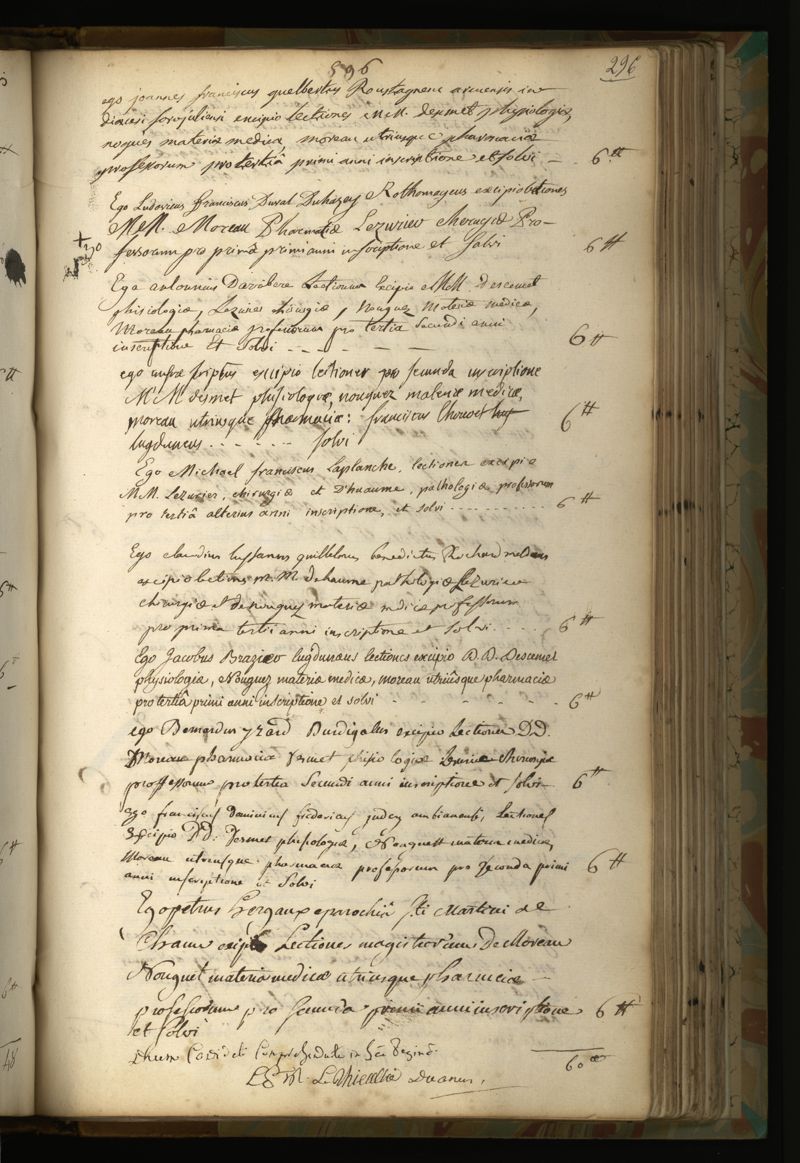 596
296
ego joannes franciscus guelbertus Roustagnenc arcuensis in
diocesi forojuliensi excipio lectiones M.M. desmet physiologiæ,
noguès materiæ medicæ, moreau utriusque pharmaciæ
professorum pro tertiâ primi anni inscriptione et solvi - 6 ₶
Ego Ludovicus franciscus Duval Duhazey Rothomageus excipio lectiones
M.M. Moreau Pharmaciæ Lezurier chirurgiæ Pro-
fessorum pro primâ primi anni inscriptione et Solvi 6 ₶
Ego antonnius Daribere Lectionum Excipio M.M. descemet
phisiologiæ, Lezurier chirurgiæ, Nouguez Materiæ médicæ,
Moreau pharmaciæ professorum pro tertia Secundi anni
inscriptione Et solvi - - - - 6 ₶
ego infra scriptus excipio lectiones pro secunda inscriptione
M M desmet phisiologiæ, nouguez materiæ medicæ,
moreau utriusque pharmaciæ: franciscus Chouvet
lugduneus - - - - - - solvi 6 ₶
Ego Michael franciscus Laplanche, lectiones excipio
M.M. Lezurier, chirurgiæ et D'huaume, pathologiæ professorum
pro tertiâ alterius anni inscriptione, et solvi - - - - 6 ₶
Ego claudius guillelmus benedictus
excipio lectiones m. M dehaume pathologiæ Lezurier
chirurgiæ et de nouguez materiæ medicæ professorum
pro prima tertii anni inscriptione et solvi - - - - 6 ₶
Ego Jacobus Brazier lugdunæus lectiones excipio D.D. Descemet
physiologiæ, Nouguez materiæ medicæ, moreau utriusque pharmaciæ
pro tertiâ primi anni inscriptione et solvi - - - - - 6 ₶
ego Bernardus yzard Burdigalus excipio Lectiones D.D.
Moreau pharmaciæ desmet phisiologiæ Lezurier Chirurgiæ
professorum pro tertia Secundi anni inscriptione et solvi - 6 ₶
ego franciscus Dominicus fredericus judcy ambianensis, Lectiones
Excipio D.D. Desmet phisologiæ, Nouguett materiæ medicæ,
Moreau utriusque pharmaciæ professorum pro Secunda primi
anni inscriptione et Solvi 6 ₶
Ego petrus Gergaux eparochiâ Sti Martini de
Chaum excipio Lectiones magistrorum De Moreau
Nouguet materiæ medicæ utriusque pharmciæ -
professorum pro secunda primii anni inscriptione 6 ₶
et solvi
60 ₶
L. G. M. Le Thieullier Decanus.